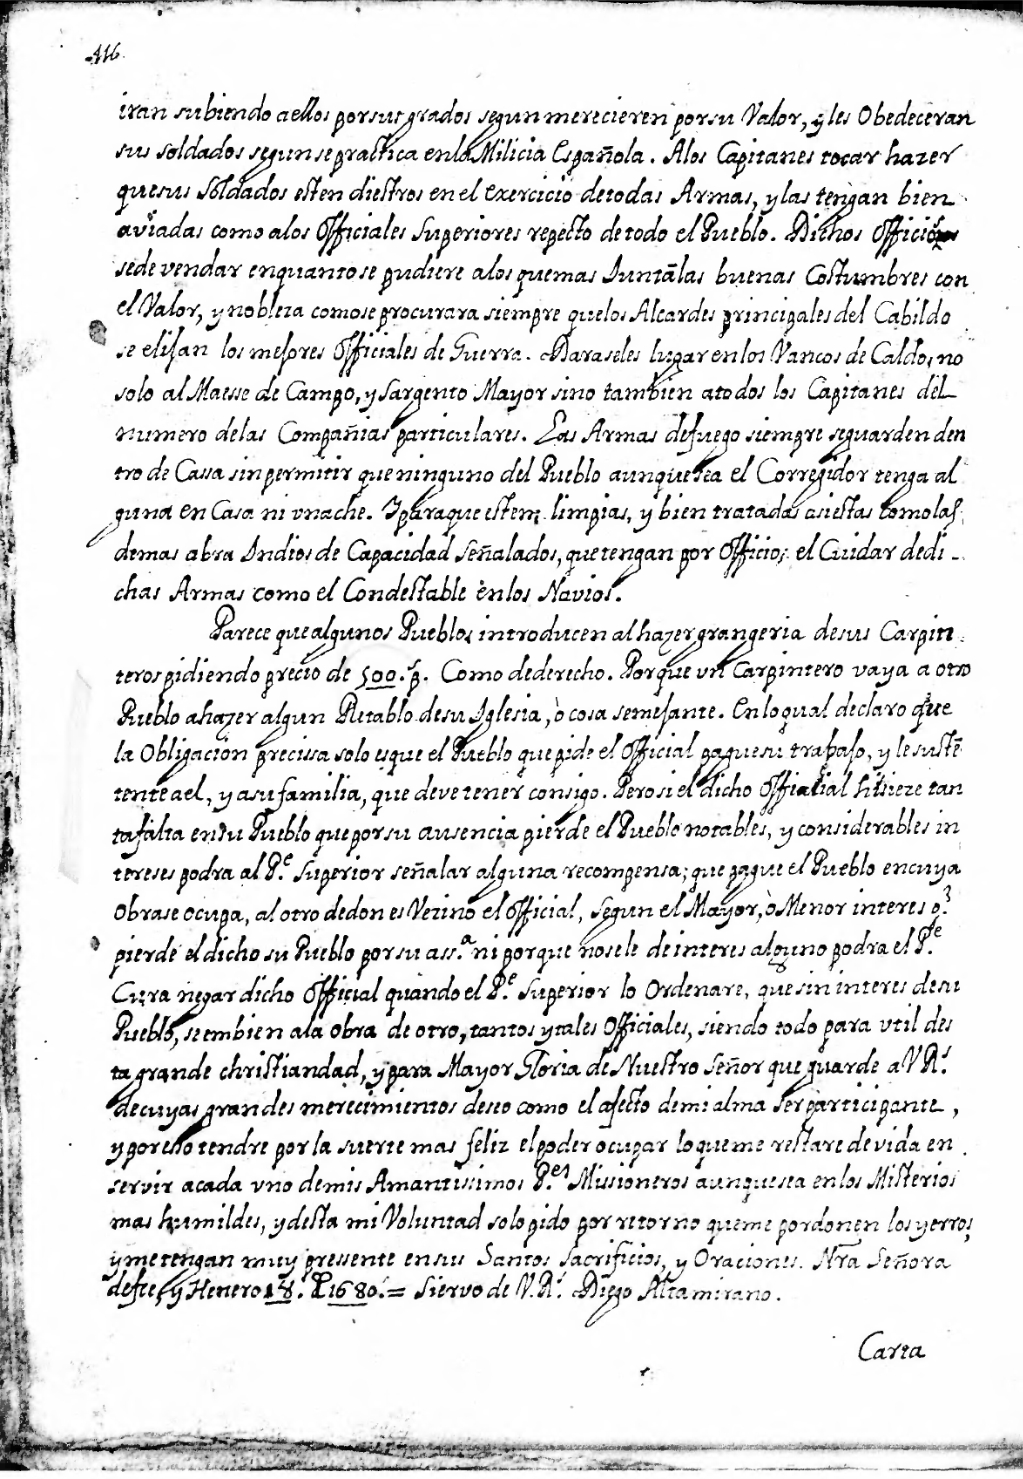 116
iran subiendo a ellos por sus grados segun merecieren por su Valor, y les Obedeceran
sus soldados segun se practica en la Milicia Española. A los Capitanes tocar hazer
que sus soldados esten diestros en el exercicio de todas Armas, y las tengan bien
aviadas como a los Officiales Superiores repecto de todo el Pueblo. Dichos Officios
se de vendar en quanto se pudiere a los que mas Juntãlas buenas Costumbres con
el Valor, y nobleza como se procurara siempre que los Alcardes principales del Cabildo
se elijan los mejores Officiales de Guerra. Daraseles lugar en los Vancos de Caldo, no
solo al Maesse de Campo, y Sargento Mayor sino tambien a todos los Capitanes del
numero de las Compañias particulares. Las Armas de fuego siempre se guarden den
tro de Cassa sin permitir que ninguno del Pueblo aunque sea el Corregidor tenga al
guna en Casa ni vna che. Y para que esten limpias, y bien tratadas asi estas como las
demas abra Indios de Capacidad Señalados, que tengan por Officio, el Cuidar de di-
chas Armas como el Condestable en los Navios.
Parece que algunos Pueblos introducen al hazer grangeria de sus Carpin
teros pidiendo precio de 500. p. Como de derecho. Porque vn Carpintero vaya a otro
Pueblo a hazer algun Retablo de su Iglesia, ò cosa semejante. En lo qual declaro que
la Obligacion precissa solo es que el Pueblo que pide el Official pague su trabajo, y le sustẽ
tente a el, y a su familia, que deve tener consigo. Pero si el dicho Official hisieze tan
ta falta en su Pueblo que por su ausencia pierde el Pueblo notables, y considerables in
tereses podra al Pe. Superior señalar alguna recompensa; que pague el Pueblo en cuya
Obra se ocupa, al otro de don es Vezino el official, segun el Mayor, ò Menor interes q.
pierde el dicho su Pueblo por su ass.a ni porque no se le de interes alguno podra el Pe.
Cura negar dicho Official quando el Pe. Superior lo Ordenare, que sin interes de su
Pueblo, se embien a la obra de otro, tantos y tales Officiales, siendo todo para vtil des
ta grande christiandad, y para Mayor Gloria de Nuestro Señor que guarde a V Rs.
de cuyas grandes merecimientos deseo como el afecto de mi alma ser participante,
y por esso tendre por la suerte mas feliz el poder ocupar lo que me restare de vida en
servir a cada vno de mis Amantissimos Pes. Misioneros aunque sea en los Misterios
mas humildes, y desta mi Voluntad solo pido por retorno que me pordonen los yerros,
y me tengan muy pressente en sus Santos Sacrificios, y Oraciones. Nrã Señora
de fee, y Henero 18. 1680. = Siervo de V.Rs. Diego Altamirano.
Carta